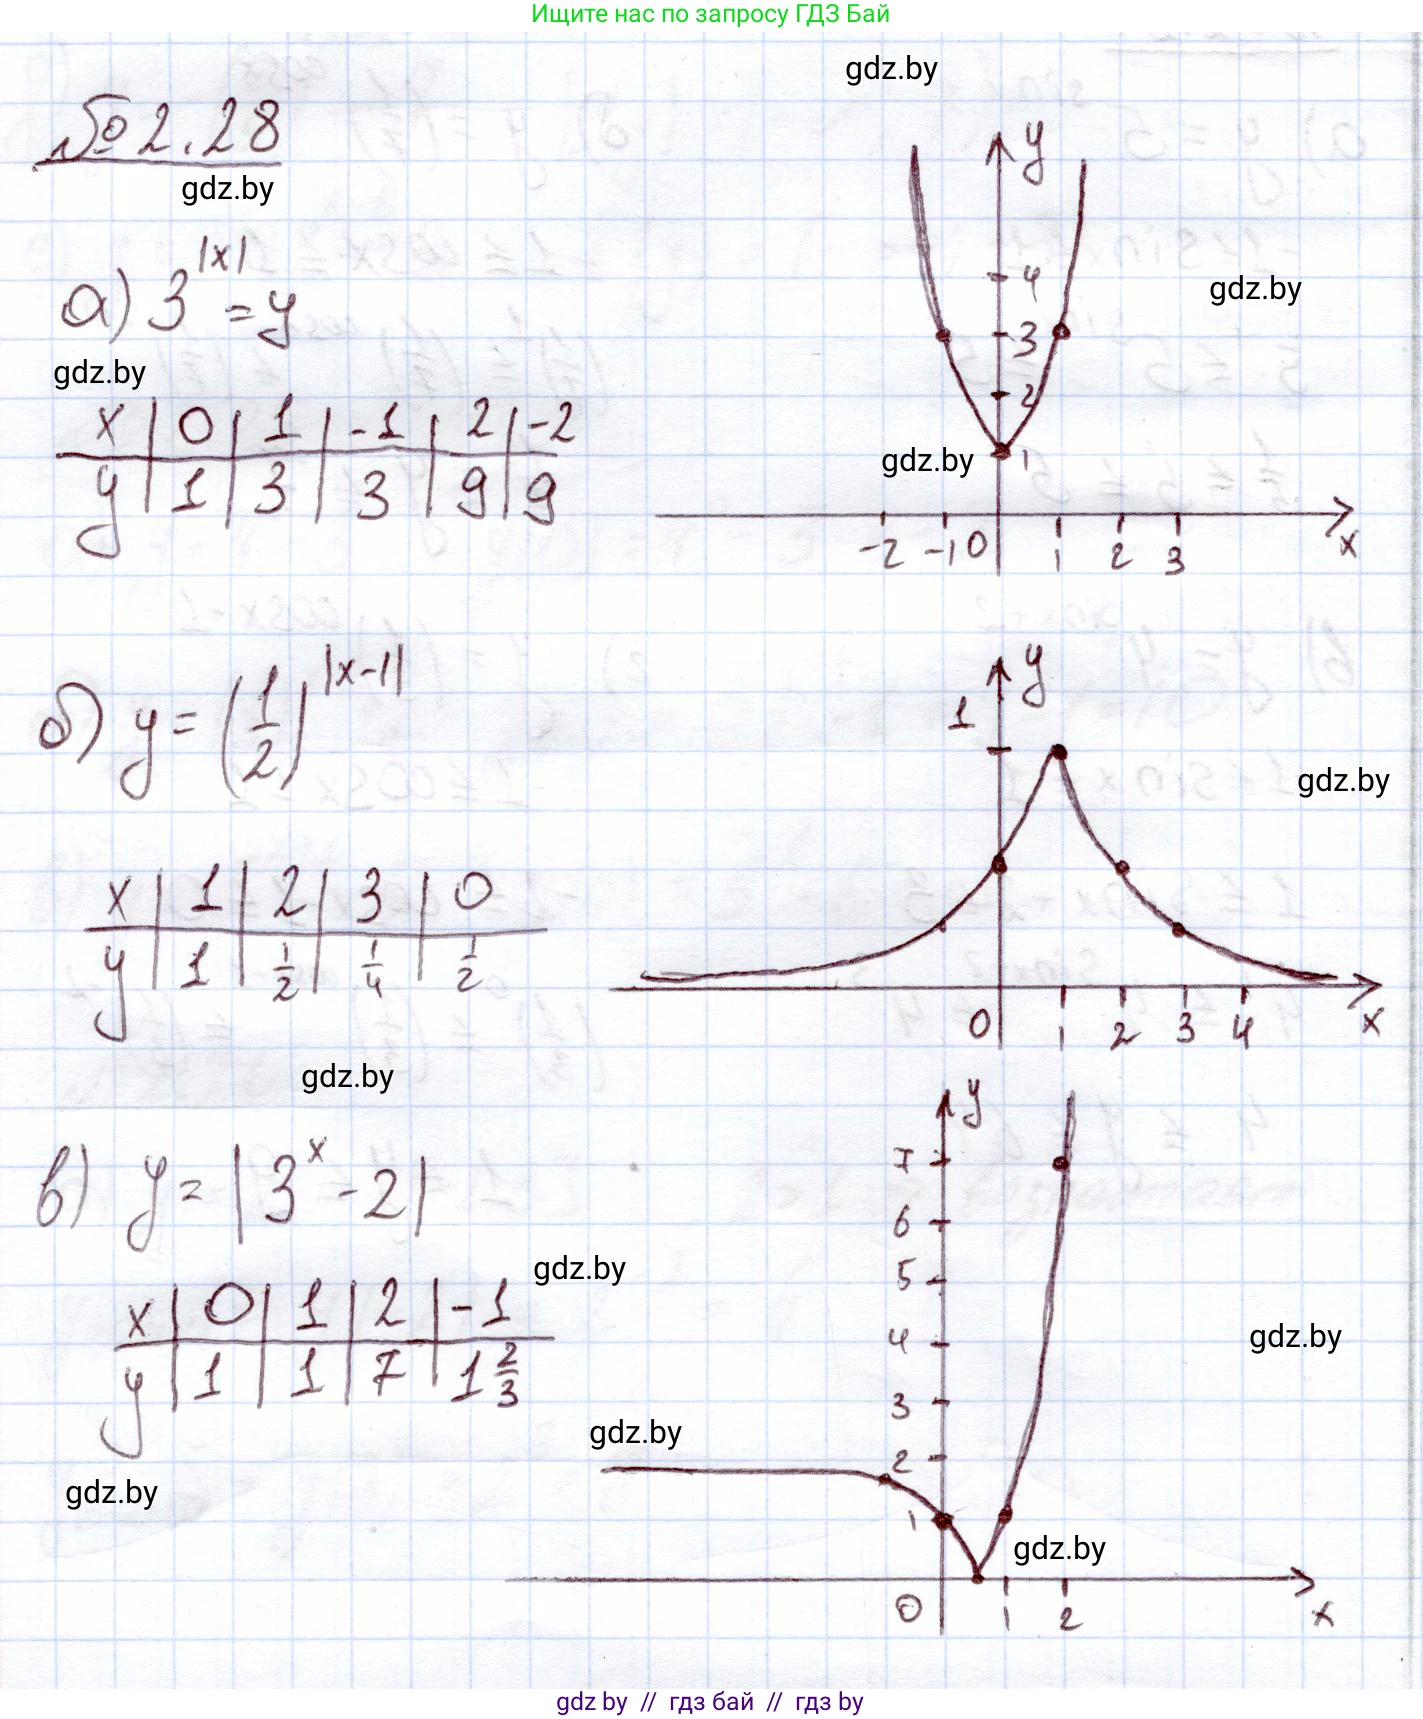 Ищите нас по запросу ГДЗ Бай
gdz.by
№ 2.28
gdz.by
y
а) 3^|x| = y
4
gdz.by
3
gdz.by
2
x | 0 | 1 | -1 | 2 | -2
gdz.by
1
y | 1 | 3 | 3 | 9 | 9
-2 -1 0 1 2 3 x
б) y = (1/2)^|x-1|
y
1
gdz.by
x | 1 | 2 | 3 | 0
y | 1 | 1/2 | 1/4 | 1/2
0 1 2 3 4 x
gdz.by
y
в) y = |3^x - 2|
7
6
gdz.by
5
x | 0 | 1 | 2 | -1
4
gdz.by
y | 1 | 1 | 7 | 1 2/3
3
gdz.by
2
gdz.by
1
gdz.by
0 1 2 x
gdz by // гдз бай // гдз by